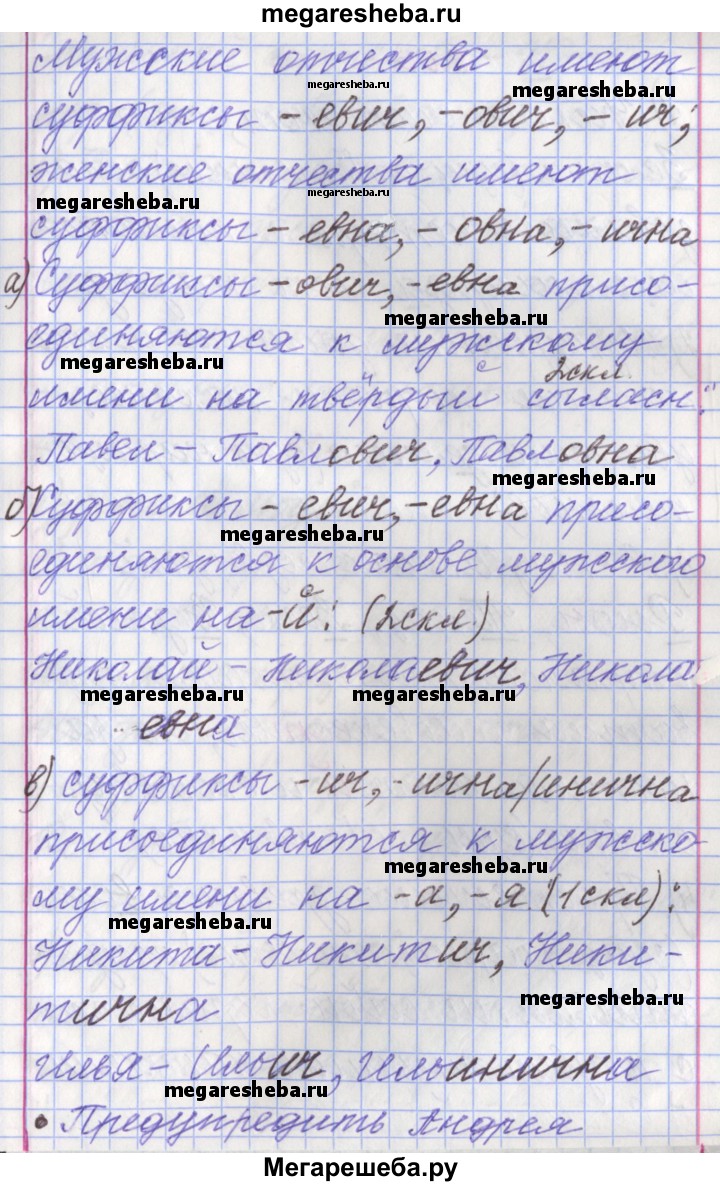 megaresheba.ru
Мужские отчества имеют
megaresheba.ru
megaresheba.ru
суффиксы - евич, -ович, - ич;
женские отчества имеют
megaresheba.ru
megaresheba.ru
суффиксы - евна, - овна, - ична
а) Суффиксы -ович, -евна присо-
megaresheba.ru
единяются к мужскому
megaresheba.ru
2скл.
имени на твёрдый согласн.:
Павел - Павлович, Павловна
megaresheba.ru
б) Суффиксы - евич, -евна присо-
megaresheba.ru
единяются к основе мужского
имени на -й: (2скл.)
Николай - Николаевич, Никола
megaresheba.ru
megaresheba.ru
евна
в) суффиксы -ич, -ична/инична
присоединяются к мужско-
megaresheba.ru
му имени на -а, -я (1скл):
megaresheba.ru
Никита - Никитич, Ники -
megaresheba.ru
тична
Илья - Ильич, Ильинична
megaresheba.ru
• Предупредить Андрея
Мегарешеба.ру